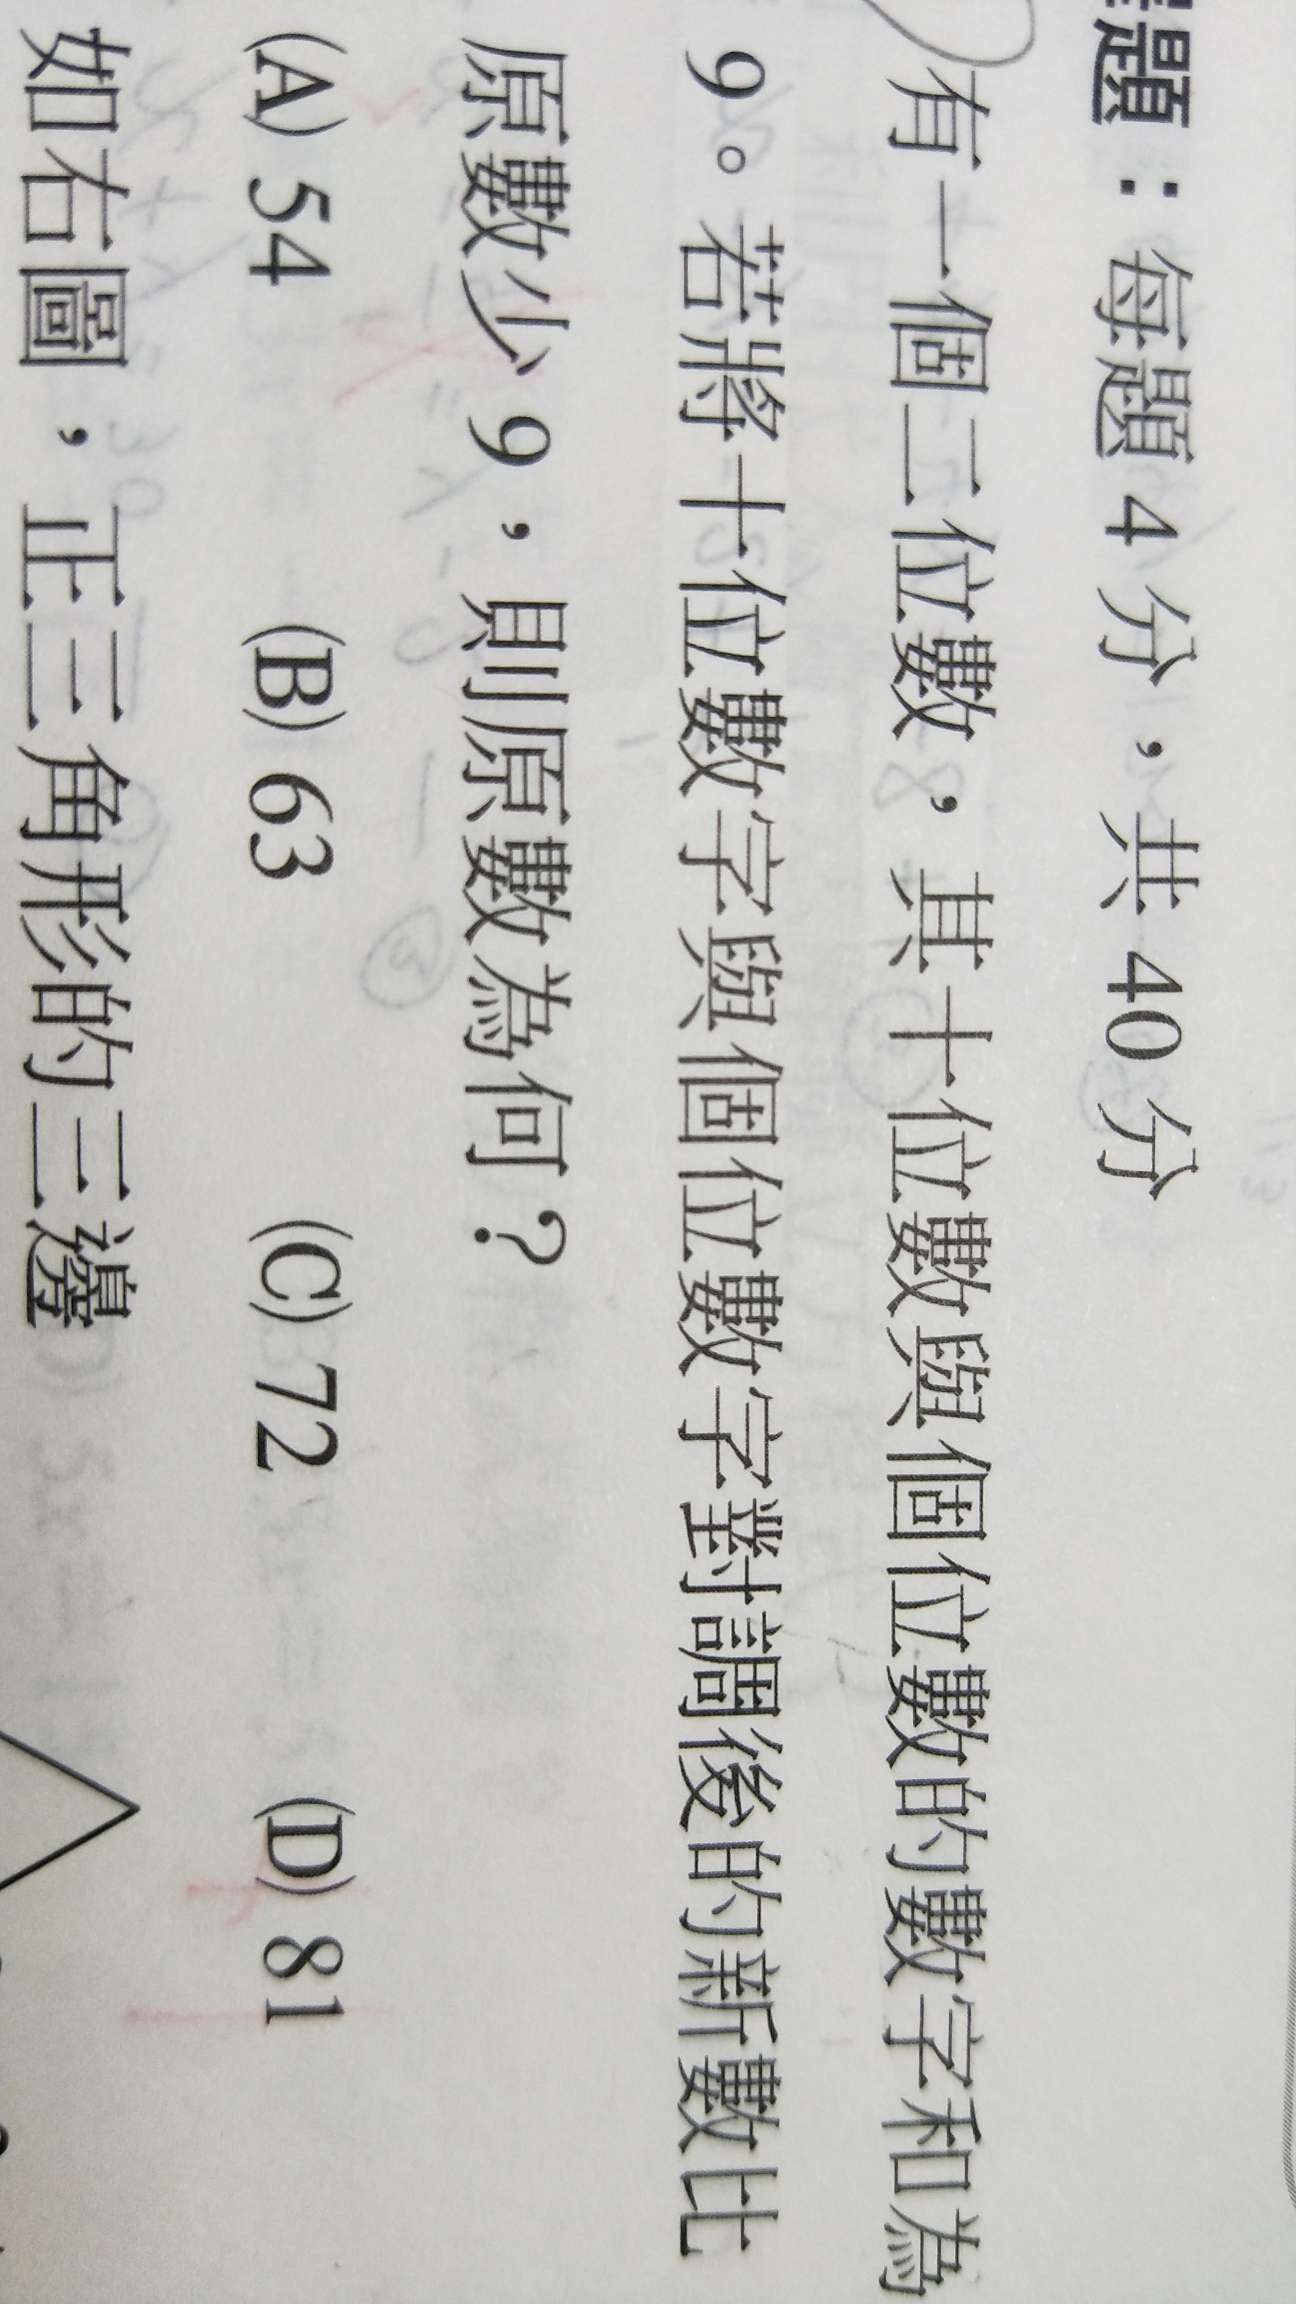 題：每題 4 分，共 40 分
有一個二位數，其十位數與個位數的數字和為
9。若將十位數字與個位數字對調後的新數比
原數少 9，則原數為何？
(A) 54 (B) 63 (C) 72 (D) 81
如右圖，正三角形的三邊